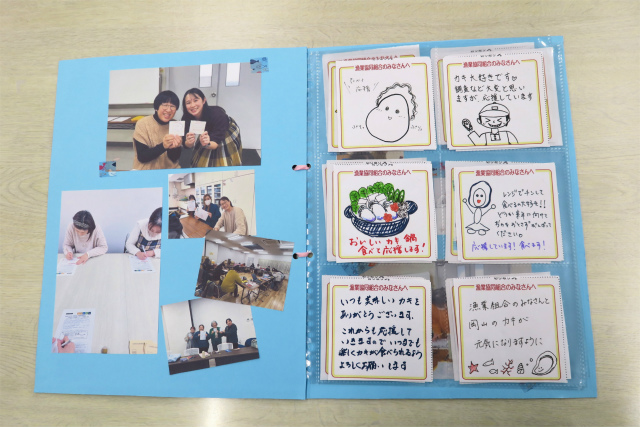 漁業協同組合のみなさんへ
漁業協同組合のみなさんへ
カキ大好きです。
調査など大変と思い
ますが、応援しています
漁業協同組合のみなさんへ
おいしいカキ鍋
食べて応援します!
漁業協同組合のみなさんへ
レンジでチンして
食べるの大好き!!
ください。
応援しています!食べます!
漁業協同組合のみなさんへ
いつも美味しいカキを
ありがとうございます。
これからも応援して
いきますので いつまでも
楽しくカキが食べられるよう
よろしくお願いします
漁業協同組合のみなさんへ
漁業組合のみなさんと
岡山のカキが
元気になりますように